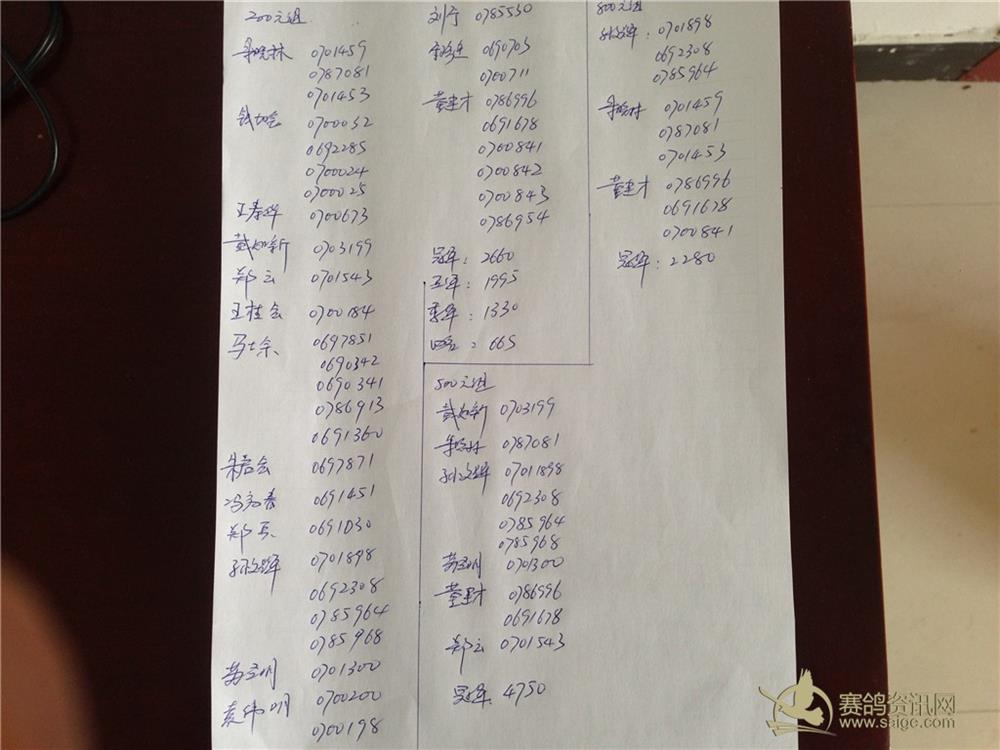 200元组
林 0701459
0787081
0701453
钱 会 0700032
0692285
0700024
0700025
王春华 0700673
戴如新 0703199
郑云 0701543
王桂会 0700184
马士余 0697851
0690342
0690341
0786913
0691360
会 0697871
冯 春 0691451
郑 0691030
孙文辉 0701898
0692308
0785964
0785968
苏 明 0701300
袁伟明 0700200
0700198
刘宁 0785530
0690703
0700711
董建才 0786996
0691678
0700841
0700842
0700843
0786954
冠军: 2660
亚军: 1995
季军: 1330
四名: 665
500元组
戴如新 0703199
林 0787081
孙文辉 07011898
0692308
0785964
0785968
苏 明 0701300
董建才 0786996
0691678
郑云 0701543
冠军: 4750
800元组
孙文辉: 0701898
0692308
0785964
林 0701459
0787081
0701453
董建才 0786996
0691678
0700841
冠军: 2280
赛鸽资讯网
www.saige.com